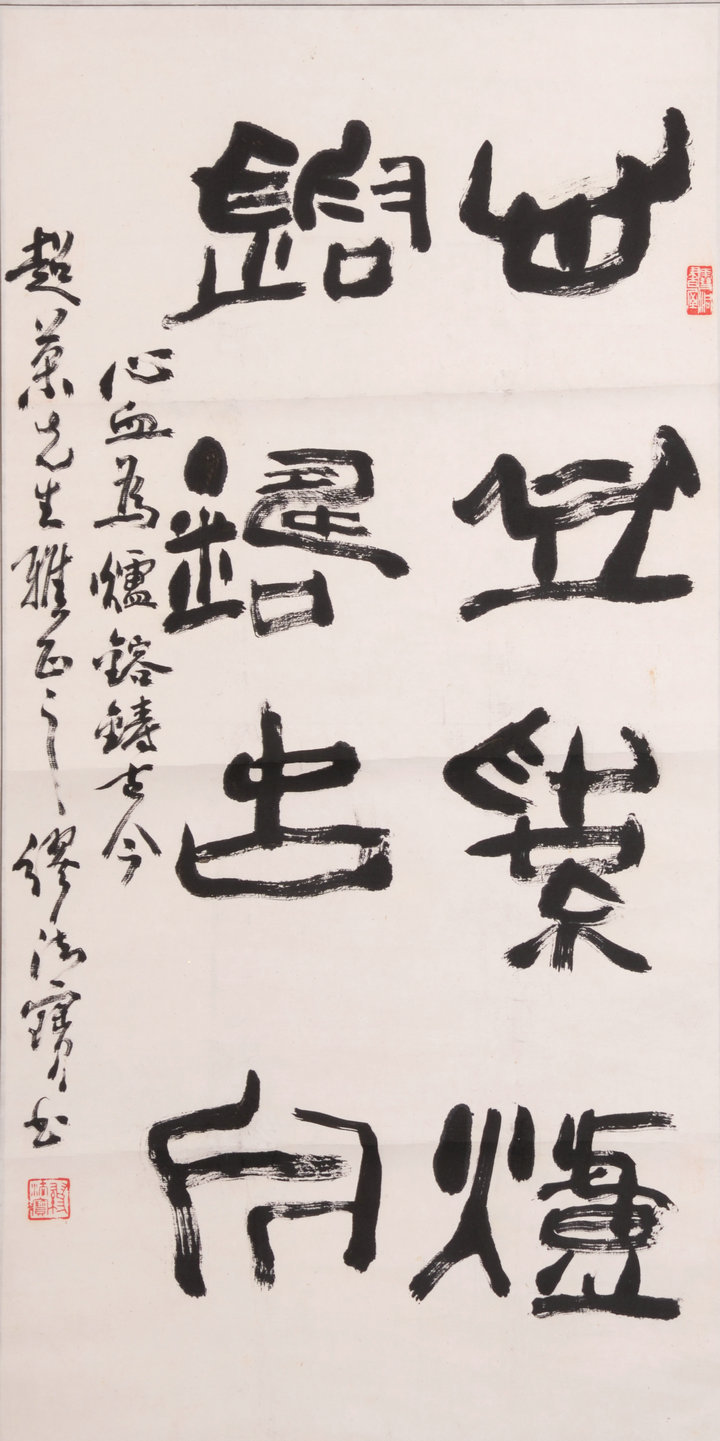 心血為爐
鎔鑄古今
心血為爐鎔鑄古今
超葉先生雅正之 繆法寶書